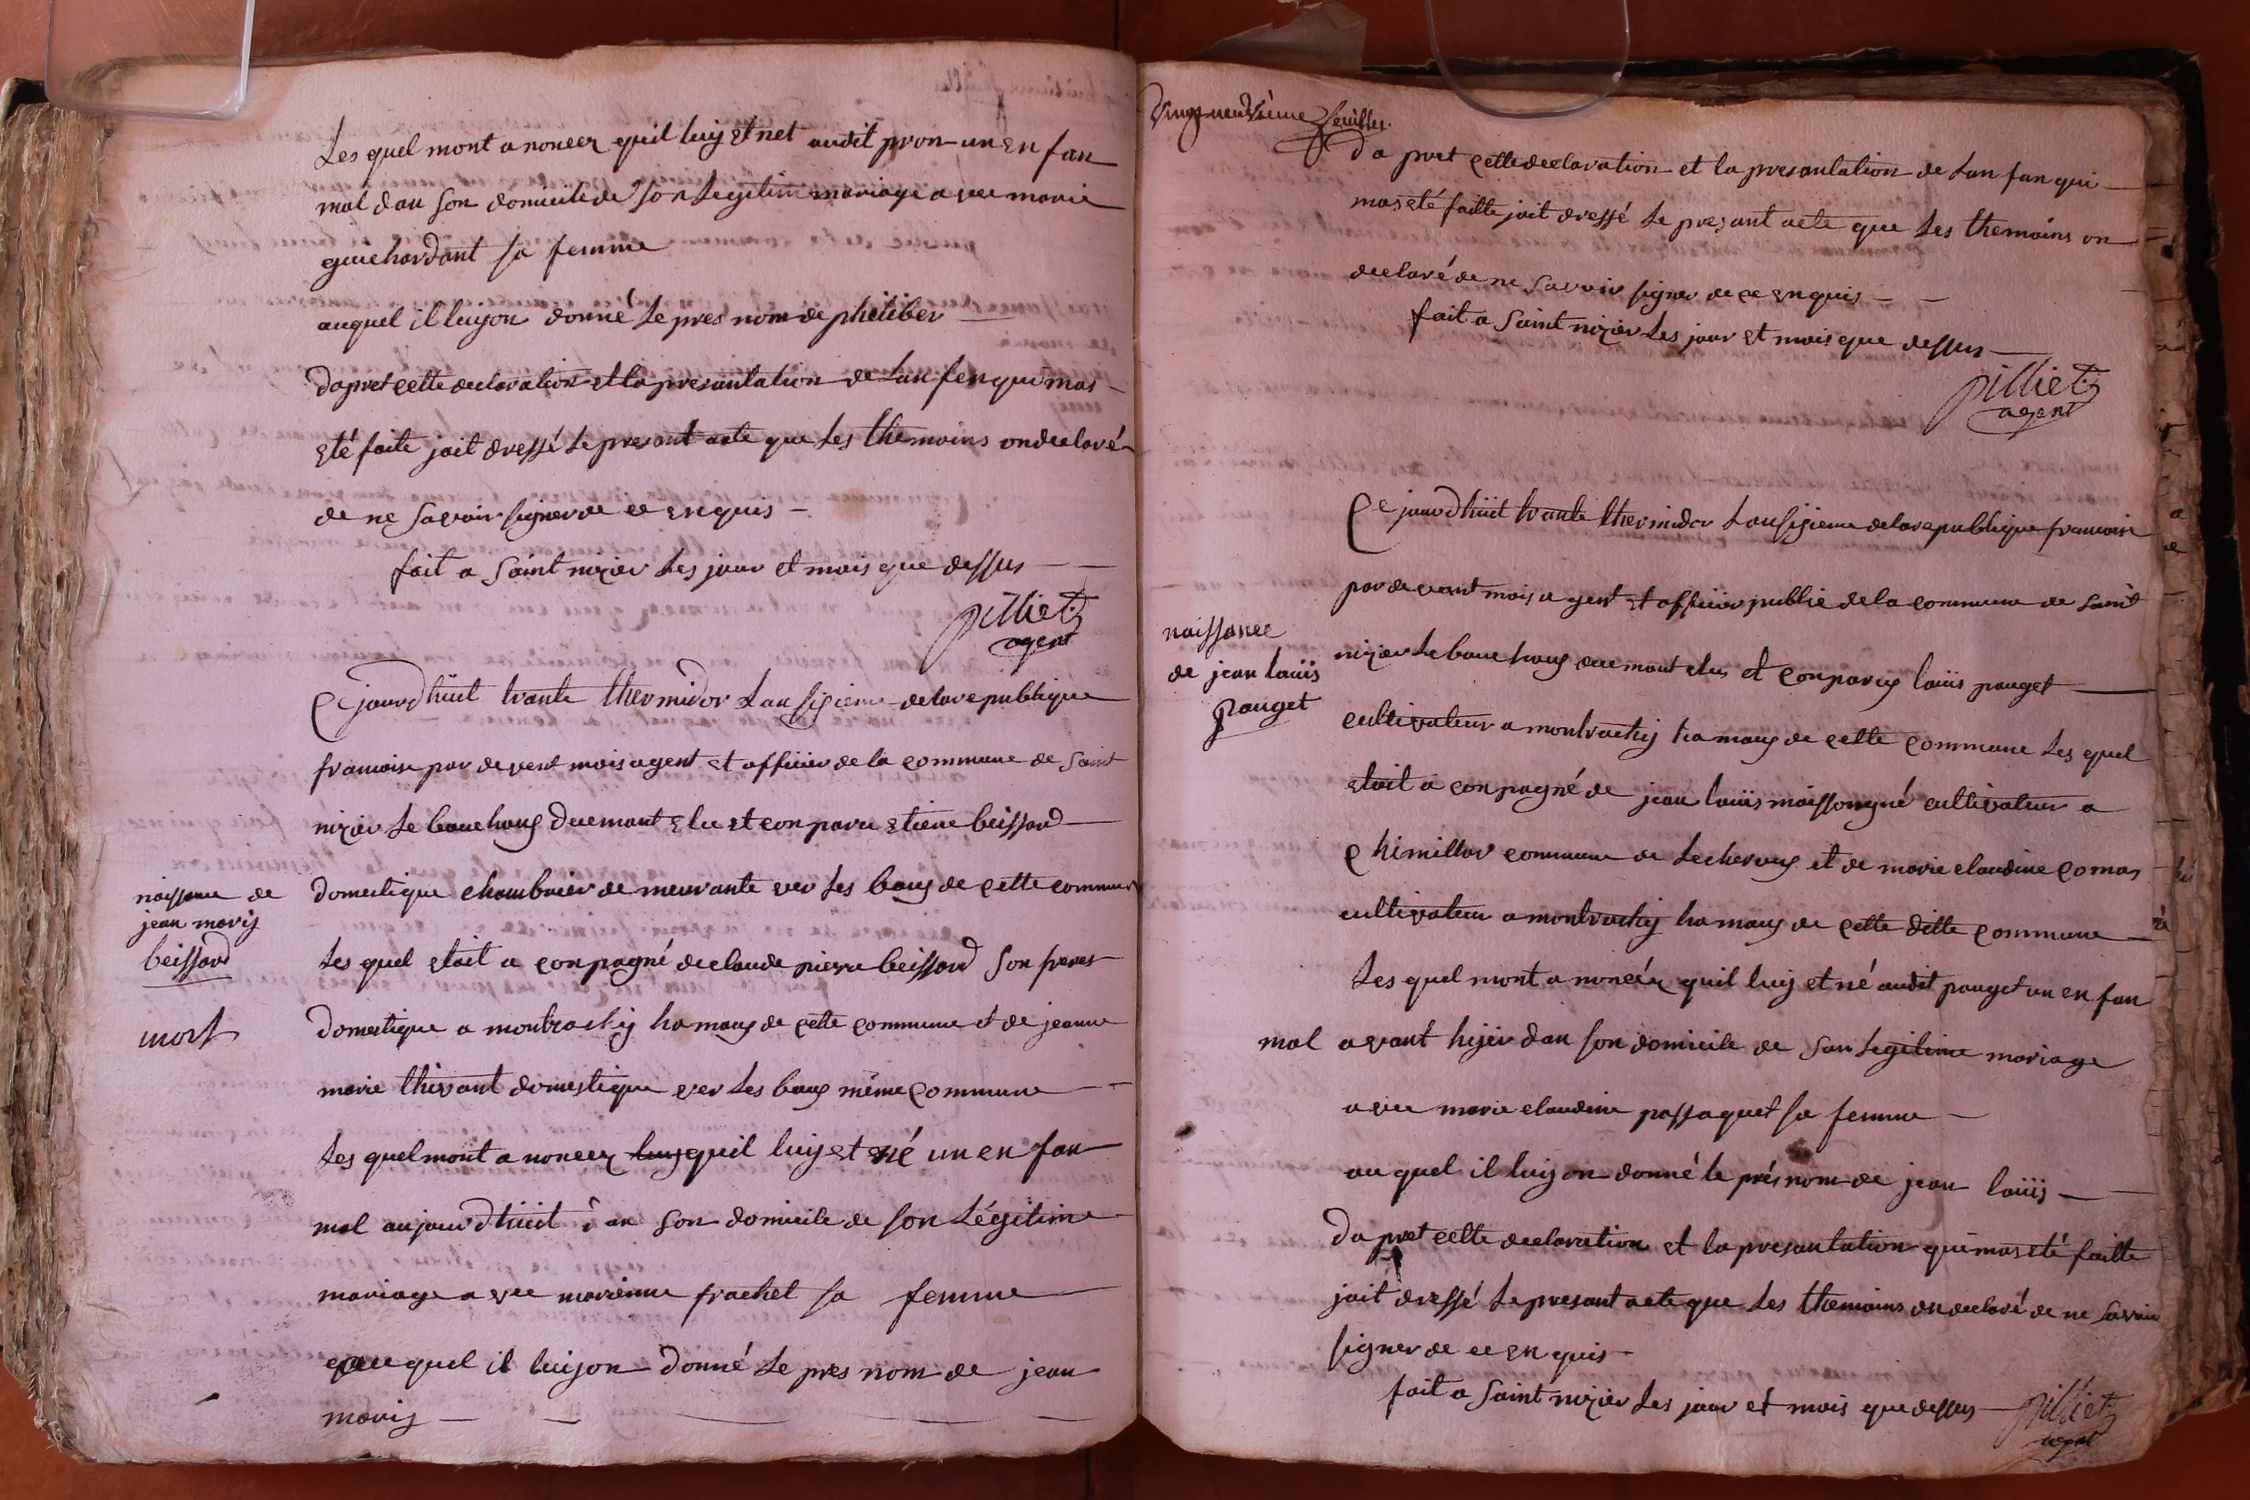 Les quel mont a noncer quil luy et net audit pron un en fan
mal dan son domicile de son Legitim mariage avec marie
guichardant sa femme
auquel il luyon donné Le pres nom de philiber
dapret cette declaration et la presantation de Lan fen qui mas
été faite jait dressé Le presant acte que Les themoins on declaré
de ne savoir signer de ce enquis
fait a Saint nizier Les jour et mois que dessus
pilliet
agent
Ce jourdhuit trante thermidor Lan sizieme de la republique
francoise par devent mois agent et officier de la commune de Saint
nizier Le bouchoug duemant elu et conparu etiene beissard
naissance de
jean mariy
beissard
mort
domestique chambrier de meurante ver Les bouy de cette commune
Les quel etait a conpagné de claude pierre beissard son freres
domestique a montrachiy hamauy de cette commune et de jeanne
marie thivant domestique ver Les bouy même commune
Les quel mont a noncer luy quil luy et né un en fan
mal aujourdhuit dan son domicile de son Légitime
mariage avec marienne frachet sa femme
auquel il luyon donné Le pres nom de jean
mariy
vingneuvième feuillet
da pret cette declaration et la presantation de Lan fan qui
mas été faitte jait dressé Le presant acte que Les themoins on
declaré de ne savoir signer de ce enquis
fait a Saint nizier Les jour et mois que dessus
pilliet
agent
Ce jourdhuit trante thermidor Lan sizieme de la republique francoise
par devant mois agent et officier public de la commune de saint
naissance
de jean louis
pouget
nizier Le bouchoug duemant elu et conparuy louis pouget
cultivateur a montrachiy hamauy de cette commune Les quel
etait a conpagné de jean louis maissonyné cultivateur a
chimillar commune de Lecheroug et de marie claudine comas
cultivateur a montrachiy hamauy de cette ditte commune
Les quel mont a noncér quil luy et né audit pouget un en fan
mal avant hijer dan son domicile de san Legitime mariage
avec marie claudine passaquet sa femme
au quel il luy on donné le prés nom de jean louis
dapret cette declaration et la presantation qui mas eté faitte
jait dressé Le presant acte que Les themoins on declaré de ne savoir
signer de ce enquis
fait a Saint nizier Les jour et mois que dessus
pilliet
agent